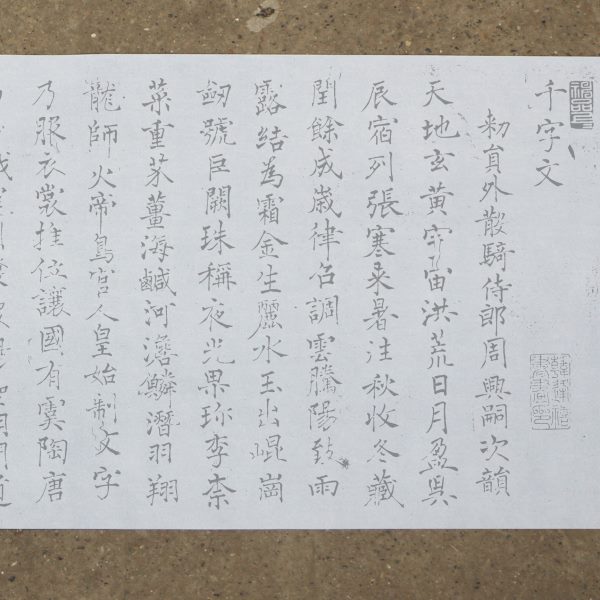 千字文
勑貟外散騎侍郎周興嗣次韻
天地玄黃宇宙洪荒日月盈昃
辰宿列張寒来暑往秋收冬藏
閏餘成歲律呂調雲騰陽致雨
露結為霜金生麗水玉出崐崗
劒號巨闕珠稱夜光果珎李柰
菜重芥薑海鹹河淡鱗潛羽翔
龍師火帝鳥官人皇始制文字
乃服衣裳推位讓國有虞陶唐